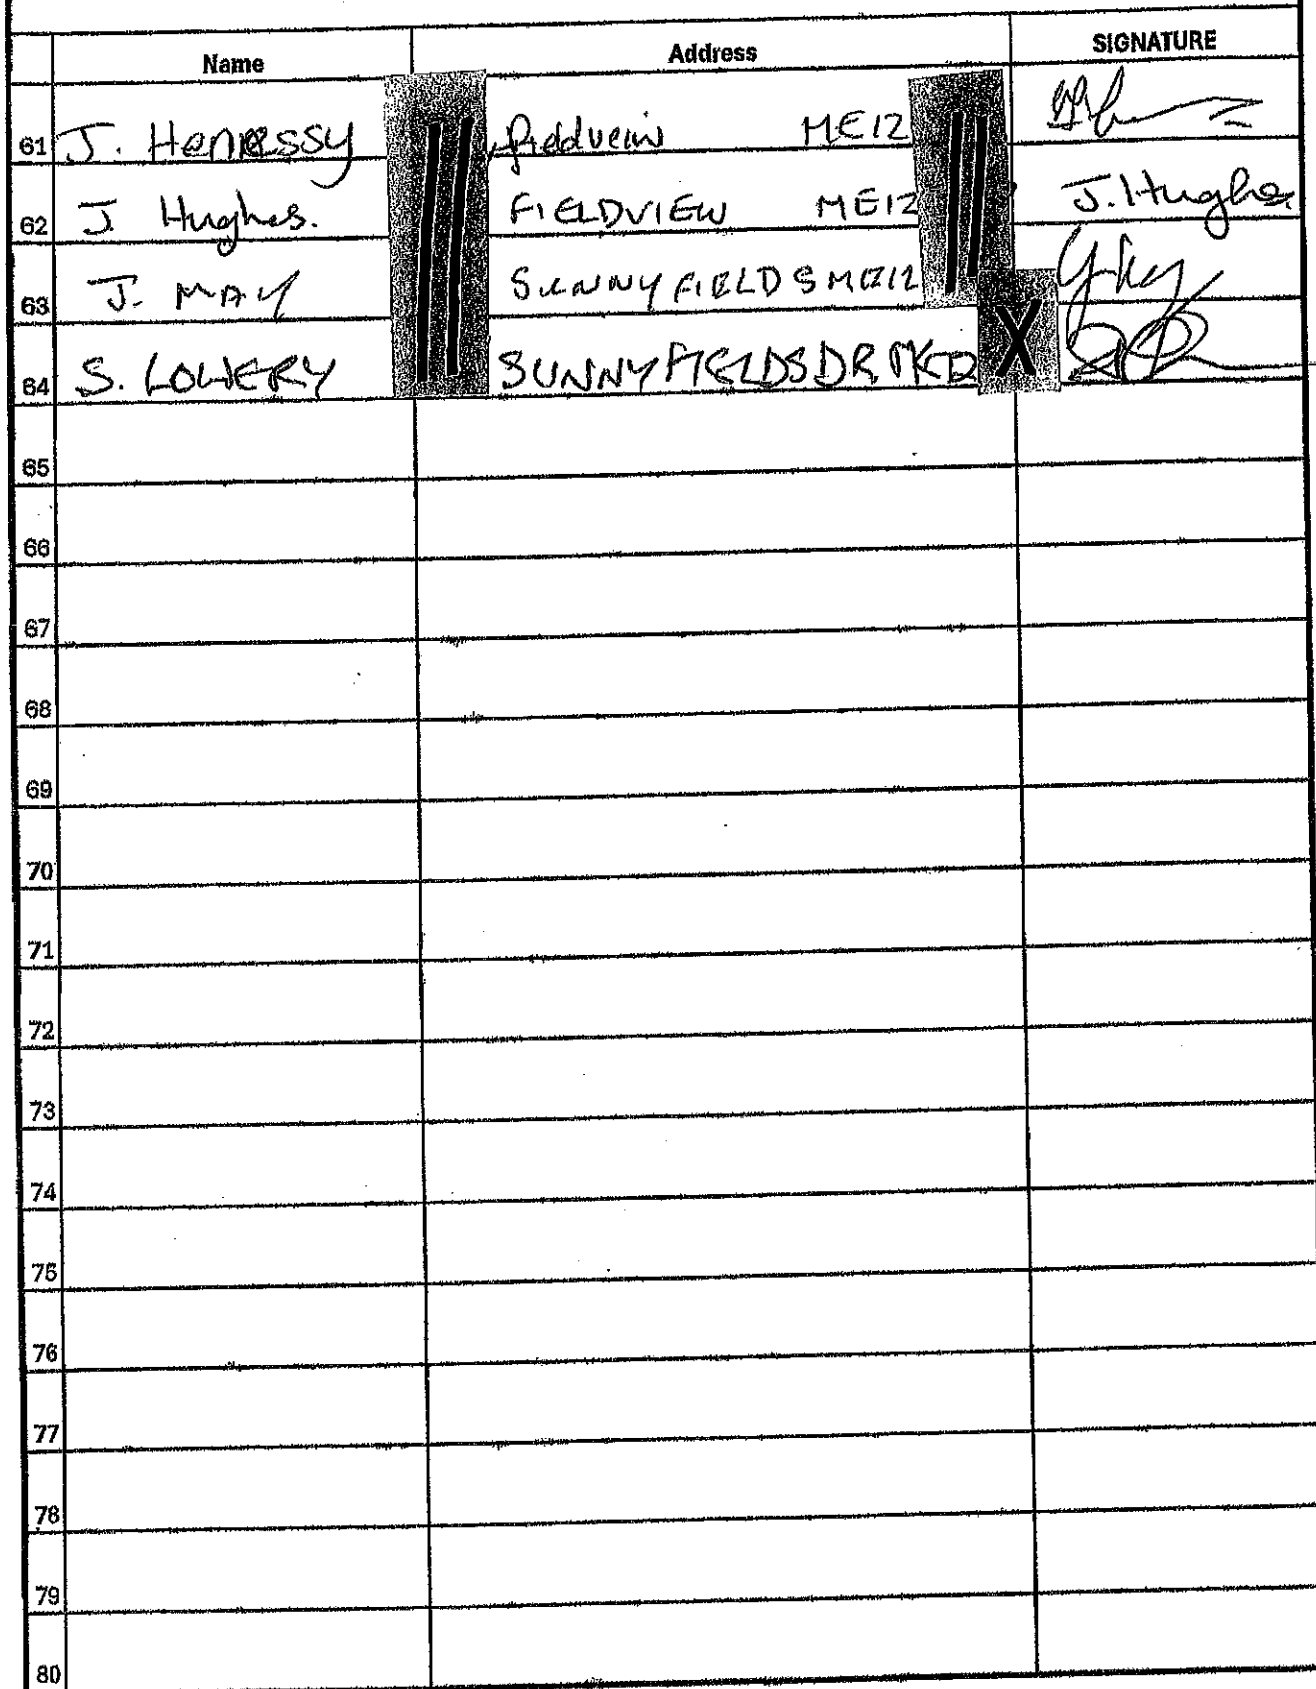 Name Address SIGNATURE
61 J. Hennessy fieldveiw ME12
62 J Hughes. FIELDVIEW ME12 J. Hughes
63 J. MAY SUNNYFIELDS ME12
64 S. LOWERY SUNNYFIELDS DR X
65
66
67
68
69
70
71
72
73
74
75
76
77
78
79
80